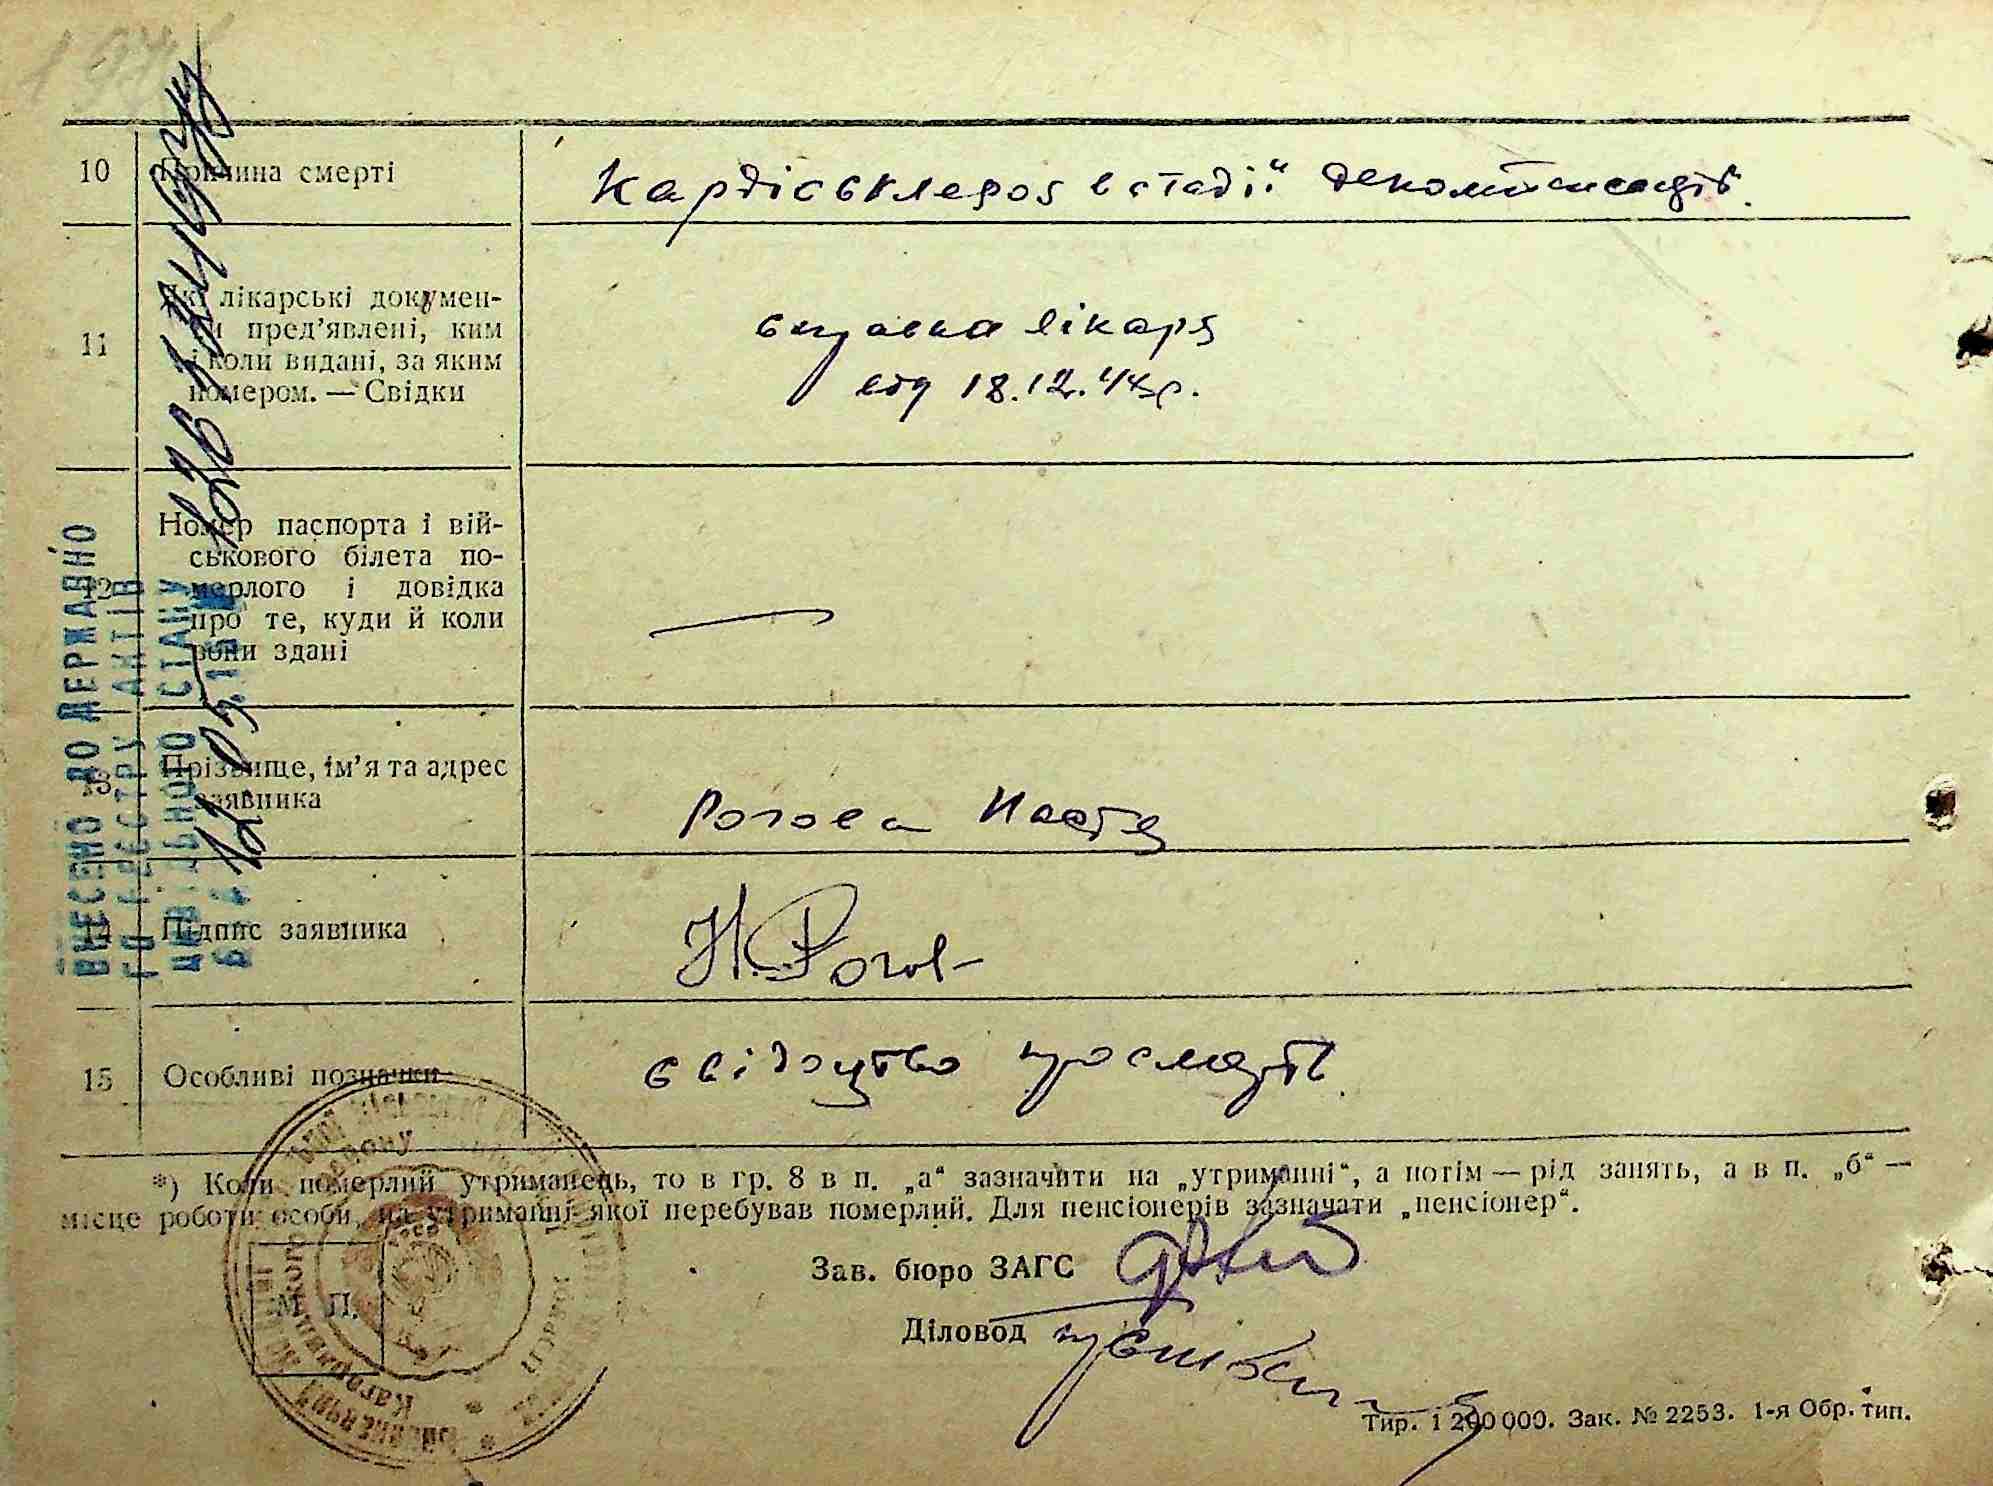 10 Причина смерті
Кардіосклероз в стадії декомпенсації.
11 Які лікарські докумен-
ти пред’явлені, ким
і коли видані, за яким
номером. — Свідки
справка лікаря
від 18.12.44р.
12 Номер паспорта і вій-
ськового білета по-
мерлого і довідка
про те, куди й коли
вони здані
13 Прізвище, ім’я та адрес
заявника
Рогова Настя
14 Підпис заявника
Н. Рогов
15 Особливі позначки
свідоцтво про смерть.
*) Коли померлий утриманець, то в гр. 8 в п. „а“ зазначити на „утриманні“, а потім — рід занять, а в п. „б“ —
місце роботи особи, на утриманні якої перебував померлий. Для пенсіонерів зазначати „пенсіонер“.
М. П.
Зав. бюро ЗАГС
Діловод
Тир. 1 200 000. Зак. № 2253. 1-я Обр. тип.
ВНЕСЕНО ДО ДЕРЖАВНО
ГО РЕЄСТРУ АКТІВ
ЦИВІЛЬНОГО СТАНУ